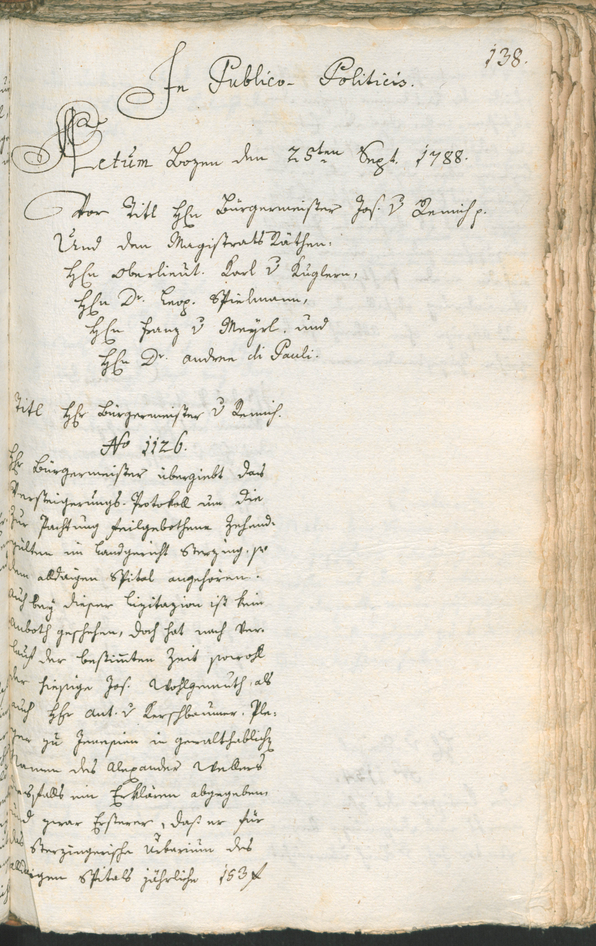 138.
In Publico- Politicis.
Actum Bozen den 25ten Sept. 1788.
Vor Titl Hhn Bürgermeister Jos. v Remich p.
Und den Magistrats Räthen:
Hhn Oberlieut. Karl v Kuglern,
Hhn Dr. Leop. Spielmann,
Hhn Franz v Mayrl. und
Hhn Dr. Andree di Pauli.
Titl Hhr Bürgermeister v Remich.
No 1126.
Hhr Bürgermeister übergiebt das
Versteigerungs-Protokoll um die
zur Pachtung feilgebothene Zehend-
gülten im Landgericht Sterzing, so
dem alldaigen Spital angehören.
Auch bey dieser Lizitazion ist kein
Anboth geschehen, doch hat nach Ver-
lauf der bestimten Zeit sowohl
der hiesige Jos. Wohlgemuth, als
auch Hhr Ant. v Kerschbaumer, Pfle-
ger zu Jenesien in gewalthablich
Namen des Alexander
ein Erklären abgegeben,
und zwar Ersterer, daß er für
das Sterzingerische Urbarium des
alldaigen Spitals jährliche 153 f